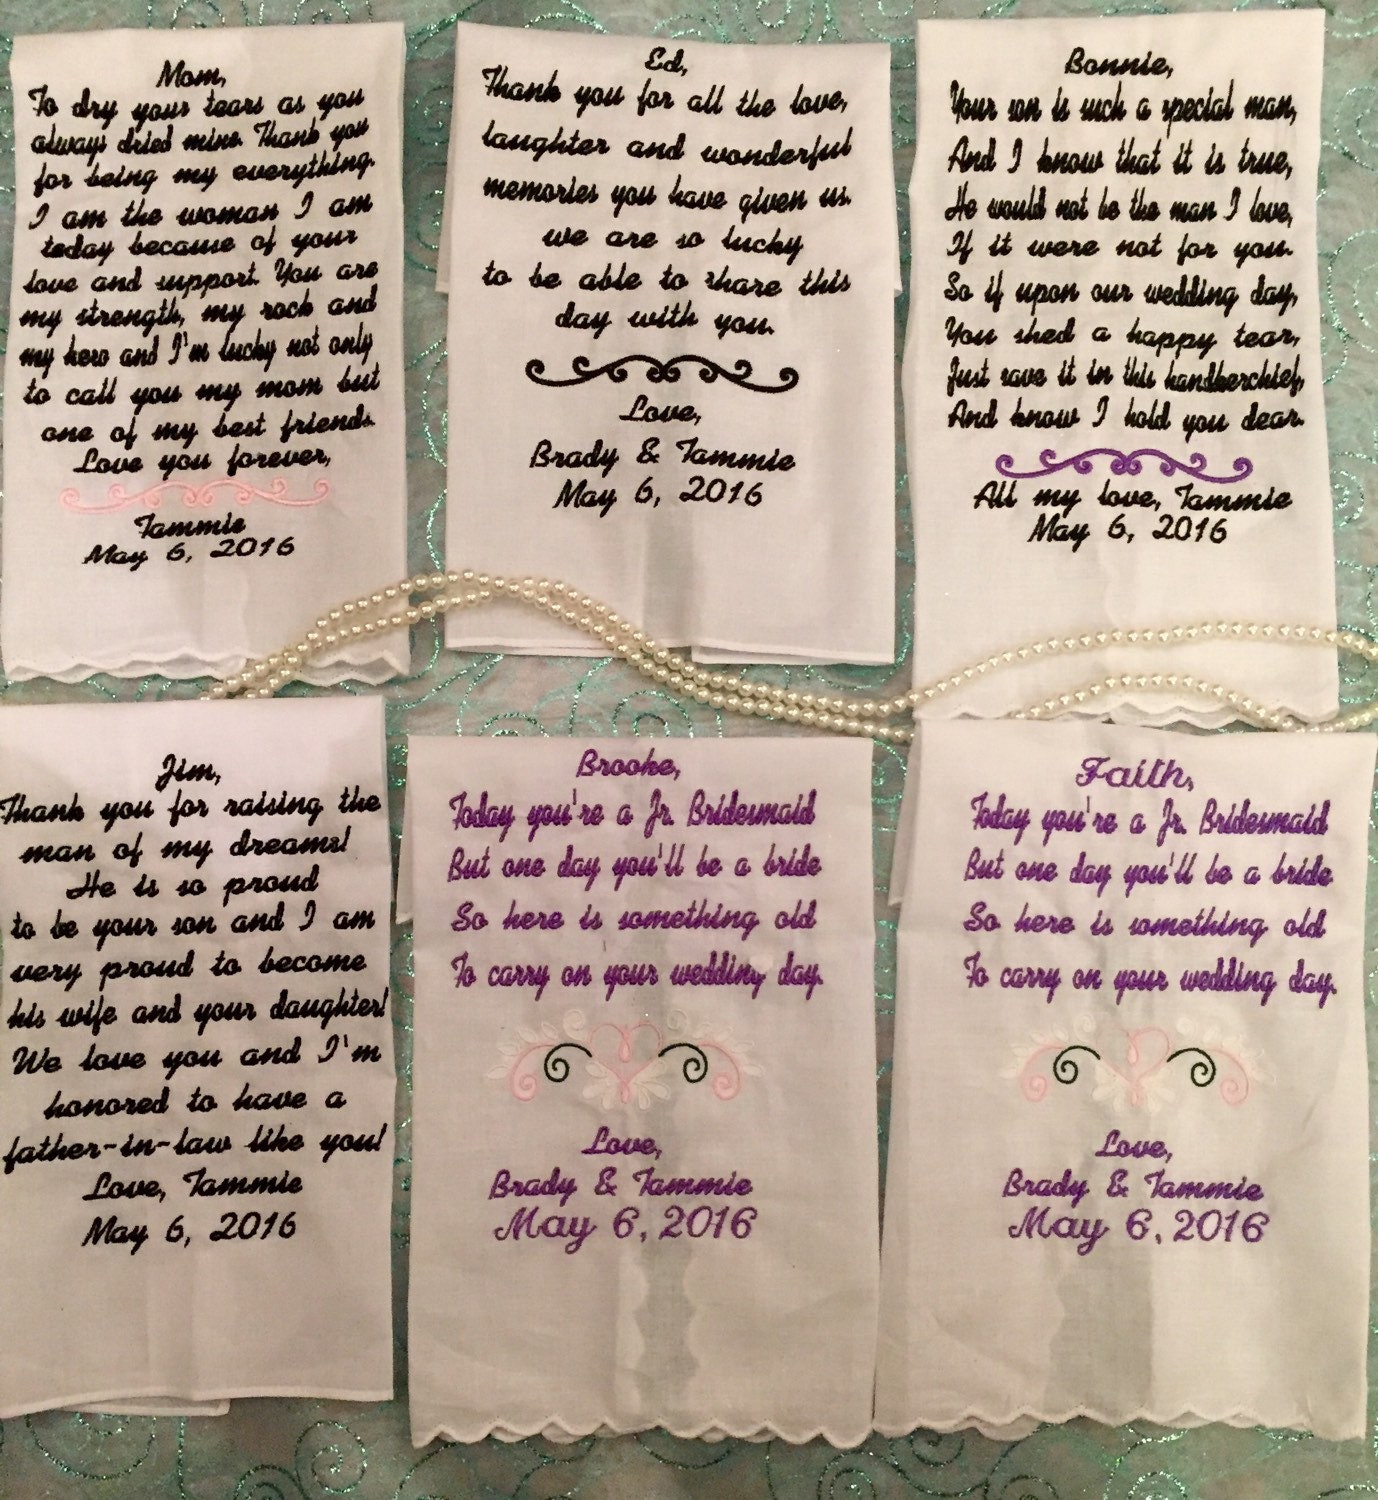 Mom,
To dry your tears as you
always dried mine. Thank you
for being my everything.
I am the woman I am
today because of your
love and support. You are
my strength, my rock and
my hero and I'm lucky not only
to call you my mom but
one of my best friends.
Love you forever,
Tammie
May 6, 2016
Ed,
Thank you for all the love,
laughter and wonderful
memories you have given us.
we are so lucky
to be able to share this
day with you.
Love,
Brady & Tammie
May 6, 2016
Bonnie,
Your son is such a special man,
And I know that it is true,
He would not be the man I love,
If it were not for you.
So if upon our wedding day,
You shed a happy tear,
Just save it in this handkerchief,
And know I hold you dear.
All my love, Tammie
May 6, 2016
Jim,
Thank you for raising the
man of my dreams!
He is so proud
to be your son and I am
very proud to become
his wife and your daughter!
We love you and I'm
honored to have a
father-in-law like you!
Love, Tammie
May 6, 2016
Brooke,
Today you're a Jr. Bridesmaid
But one day you'll be a bride
So here is something old
To carry on your wedding day.
Love,
Brady & Tammie
May 6, 2016
Faith,
Today you're a Jr. Bridesmaid
But one day you'll be a bride
So here is something old
To carry on your wedding day.
Love,
Brady & Tammie
May 6, 2016